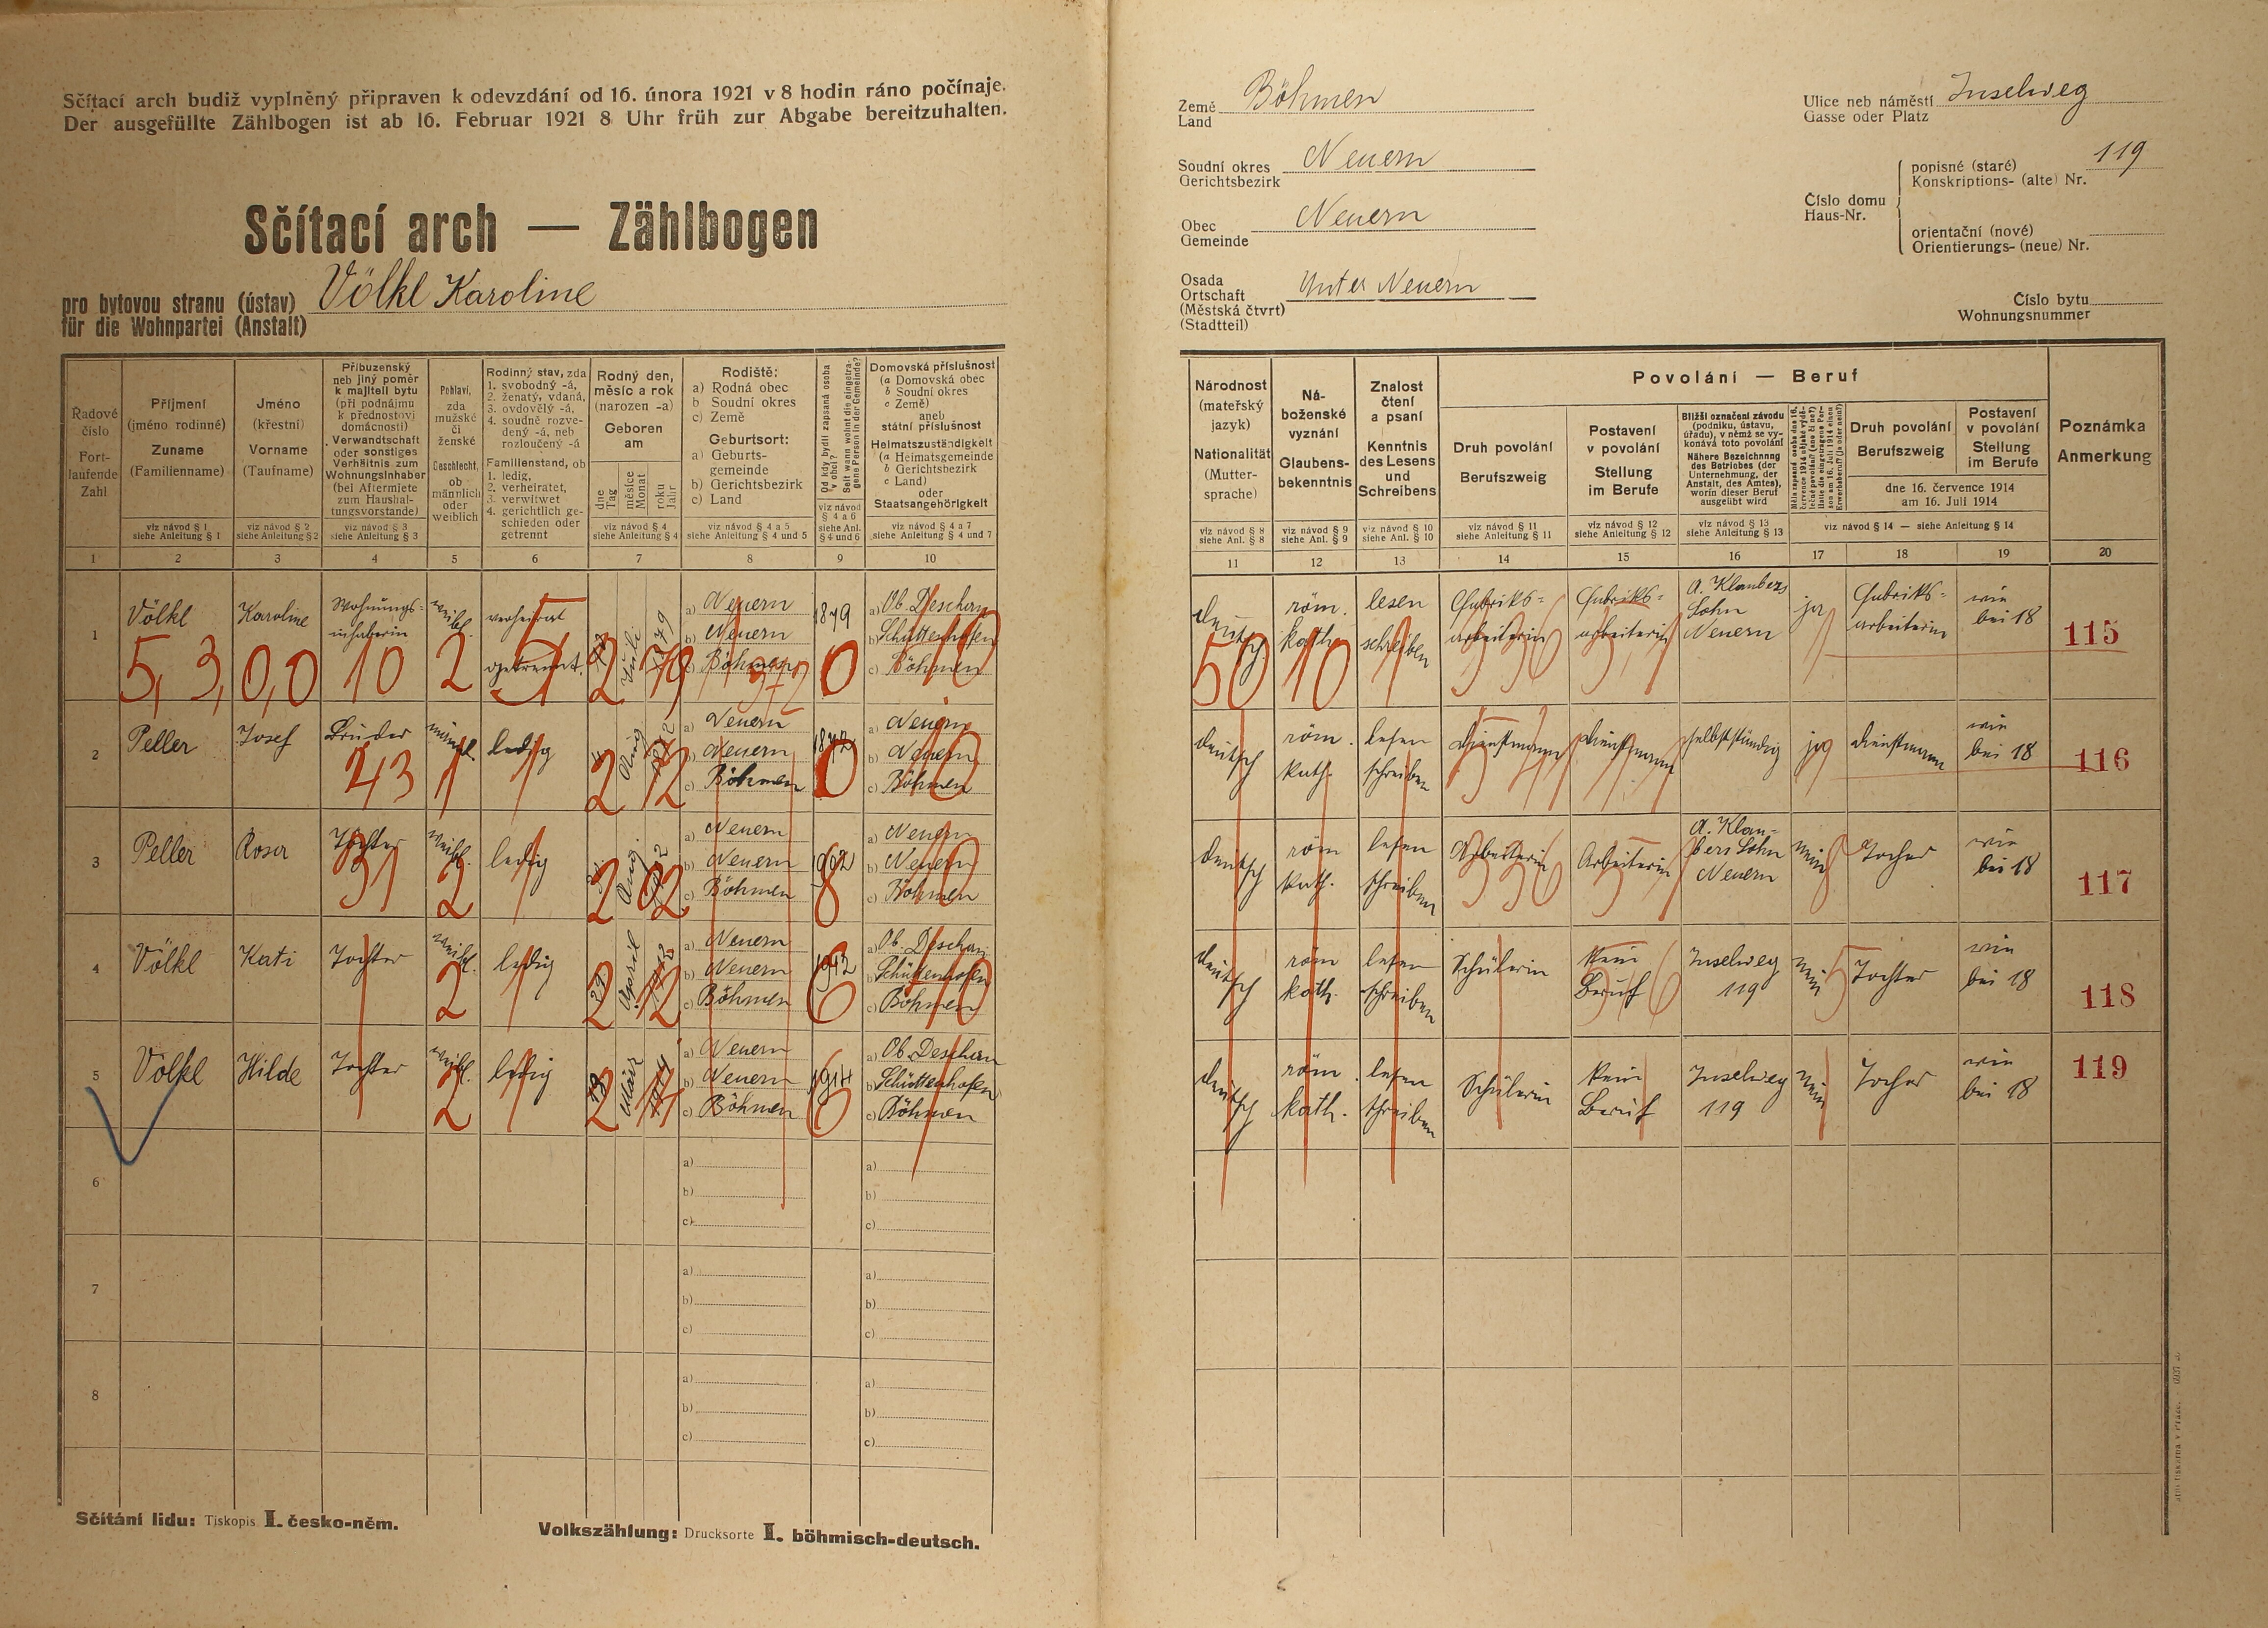 Sčítací arch budiž vyplněný připraven k odevzdání od 16. února 1921 v 8 hodin ráno počínaje.
Der ausgefüllte Zählbogen ist ab 16. Februar 1921 8 Uhr früh zur Abgabe bereitzuhalten.
Sčítací arch — Zählbogen
pro bytovou stranu (ústav) Völkl Karoline
für die Wohnpartei (Anstalt)
Země Böhmen
Land
Soudní okres Neuern
Gerichtsbezirk
Obec Neuern
Gemeinde
Osada
Ortschaft Unter Neuern
(Městská čtvrt)
(Stadtteil)
Ulice neb náměstí Inselweg
Gasse oder Platz
Číslo domu
Haus-Nr.
popisné (staré) 119
Konskriptions- (alte) Nr.
orientační (nové)
Orientierungs- (neue) Nr.
Číslo bytu
Wohnungsnummer
Řadové číslo
Fortlaufende Zahl
1
Příjmení
(jméno rodinné)
Zuname
(Familienname)
viz návod § 1
siehe Anleitung § 1
2
Jméno
(křestní)
Vorname
(Taufname)
viz návod § 2
siehe Anleitung § 2
3
Příbuzenský
neb jiný poměr
k majiteli bytu
(při podnájmu
k přednostovi
domácnosti)
Verwandtschaft
oder sonstiges
Verhältnis zum
Wohnungsinhaber
(bei Aftermiete
zum Haushal-
tungsvorstande)
viz návod § 3
siehe Anleitung § 3
4
Pohlaví,
zda
mužské
či
ženské
Geschlecht,
ob
männlich
oder
weiblich
5
Rodinný stav, zda
1. svobodný -á,
2. ženatý, vdaná,
3. ovdovělý -á,
4. soudně rozve-
dený -á, neb
rozloučený -á
Familienstand, ob
1. ledig,
2. verheiratet,
3. verwitwet
4. gerichtlich ge-
schieden oder
getrennt
6
Rodný den,
měsíc a rok
(narozen -a)
Geboren
am
dne Tag
měsíce Monat
roku Jahr
viz návod § 4
siehe Anleitung § 4
7
Rodiště:
a) Rodná obec
b) Soudní okres
c) Země
Geburtsort:
a) Geburts-
gemeinde
b) Gerichtsbezirk
c) Land
viz návod § 4 a 5
siehe Anleitung § 4 und 5
8
Od kdy bydlí zapsaná osoba v obci?
Seit wann wohnt die eingetragene Person in der Gemeinde?
viz návod
§ 4 a 6
siehe Anl.
§ 4 und 6
9
Domovská příslušnost
(a Domovská obec
b Soudní okres
c Země)
aneb
státní příslušnost
Heimatszuständigkeit
(a Heimatsgemeinde
b Gerichtsbezirk
c Land)
oder
Staatsangehörigkeit
viz návod § 4 a 7
siehe Anleitung § 4 und 7
10
Národnost
(mateřský
jazyk)
Nationalität
(Mutter-
sprache)
viz návod § 8
siehe Anl. § 8
11
Ná-
boženské
vyznání
Glaubens-
bekenntnis
viz návod § 9
siehe Anl. § 9
12
Znalost
čtení
a psaní
Kenntnis
des Lesens
und
Schreibens
viz návod § 10
siehe Anl. § 10
13
Povolání — Beruf
Druh povolání
Berufszweig
viz návod § 11
siehe Anleitung § 11
14
Postavení
v povolání
Stellung
im Berufe
viz návod § 12
siehe Anleitung § 12
15
Bližší označení závodu
(podniku, ústavu,
úřadu), v němž se vy-
konává toto povolání
Nähere Bezeichnung
des Betriebes (der
Unternehmung, der
Anstalt, des Amtes),
worin dieser Beruf
ausgeübt wird
viz návod § 13
siehe Anleitung § 13
16
17
Druh povolání
Berufszweig
18
Postavení
v povolání
Stellung
im Berufe
19
dne 16. července 1914
am 16. Juli 1914
viz návod § 14 — siehe Anleitung § 14
Poznámka
Anmerkung
20
1 Völkl Karoline Wohnungs-
inhaberin weibl. verheirat
getrennt. Juli 1879
a) Neuern
b) Neuern
c) Böhmen
1879
a) Ob. Deschen
b) Schüttenhofen
c) Böhmen
deutsch röm. kath. lesen schreiben Fabriks-
arbeiterin Fabriks-
arbeiterin A. Klaubers
Sohn
Neuern ja Fabriks-
arbeiterin wie
bei 18 115
5, 3, 0, 0 10 2 2 79 0 50 10
2 Peller Josef Bruder männl. ledig Aug. 1872
a) Neuern
b) Neuern
c) Böhmen
1872
a) Neuern
b) Neuern
c) Böhmen
deutsch röm. kath. lesen schreiben Dienstmann Dienstmann selbstständig ja Dienstmann wie
bei 18 116
43 1 1 2 72 0 10
3 Peller Rosa Tochter weibl. ledig Aug. 1902
a) Neuern
b) Neuern
c) Böhmen
1902
a) Neuern
b) Neuern
c) Böhmen
deutsch röm kath. lesen schreiben Arbeiterin Arbeiterin A. Klau-
bers Sohn
Neuern nein Tochter wie
bei 18 117
31 2 1 2 02 8 10
4 Völkl Kati Tochter weibl. ledig 29 April 1912
a) Neuern
b) Neuern
c) Böhmen
1912
a) Ob. Deschen
b) Schüttenhofen
c) Böhmen
deutsch röm kath. lesen schreiben Schülerin Kein
Beruf Inselweg
119 nein Tochter wie
bei 18 118
2 1 2 12 6 10
5 Völkl Hilde Tochter weibl. ledig März 1914
a) Neuern
b) Neuern
c) Böhmen
1914
a) Ob. Deschen
b) Schüttenhofen
c) Böhmen
deutsch röm. kath. lesen schreiben Schülerin Kein
Beruf Inselweg
119 nein Tochter wie
bei 18 119
2 1 2 14 6
6
a) a)
b) b)
c) c)
7
a) a)
b) b)
c) c)
8
a) a)
b) b)
c) c)
Sčítání lidu: Tiskopis I. česko-něm.
Volkszählung: Drucksorte I. böhmisch-deutsch.